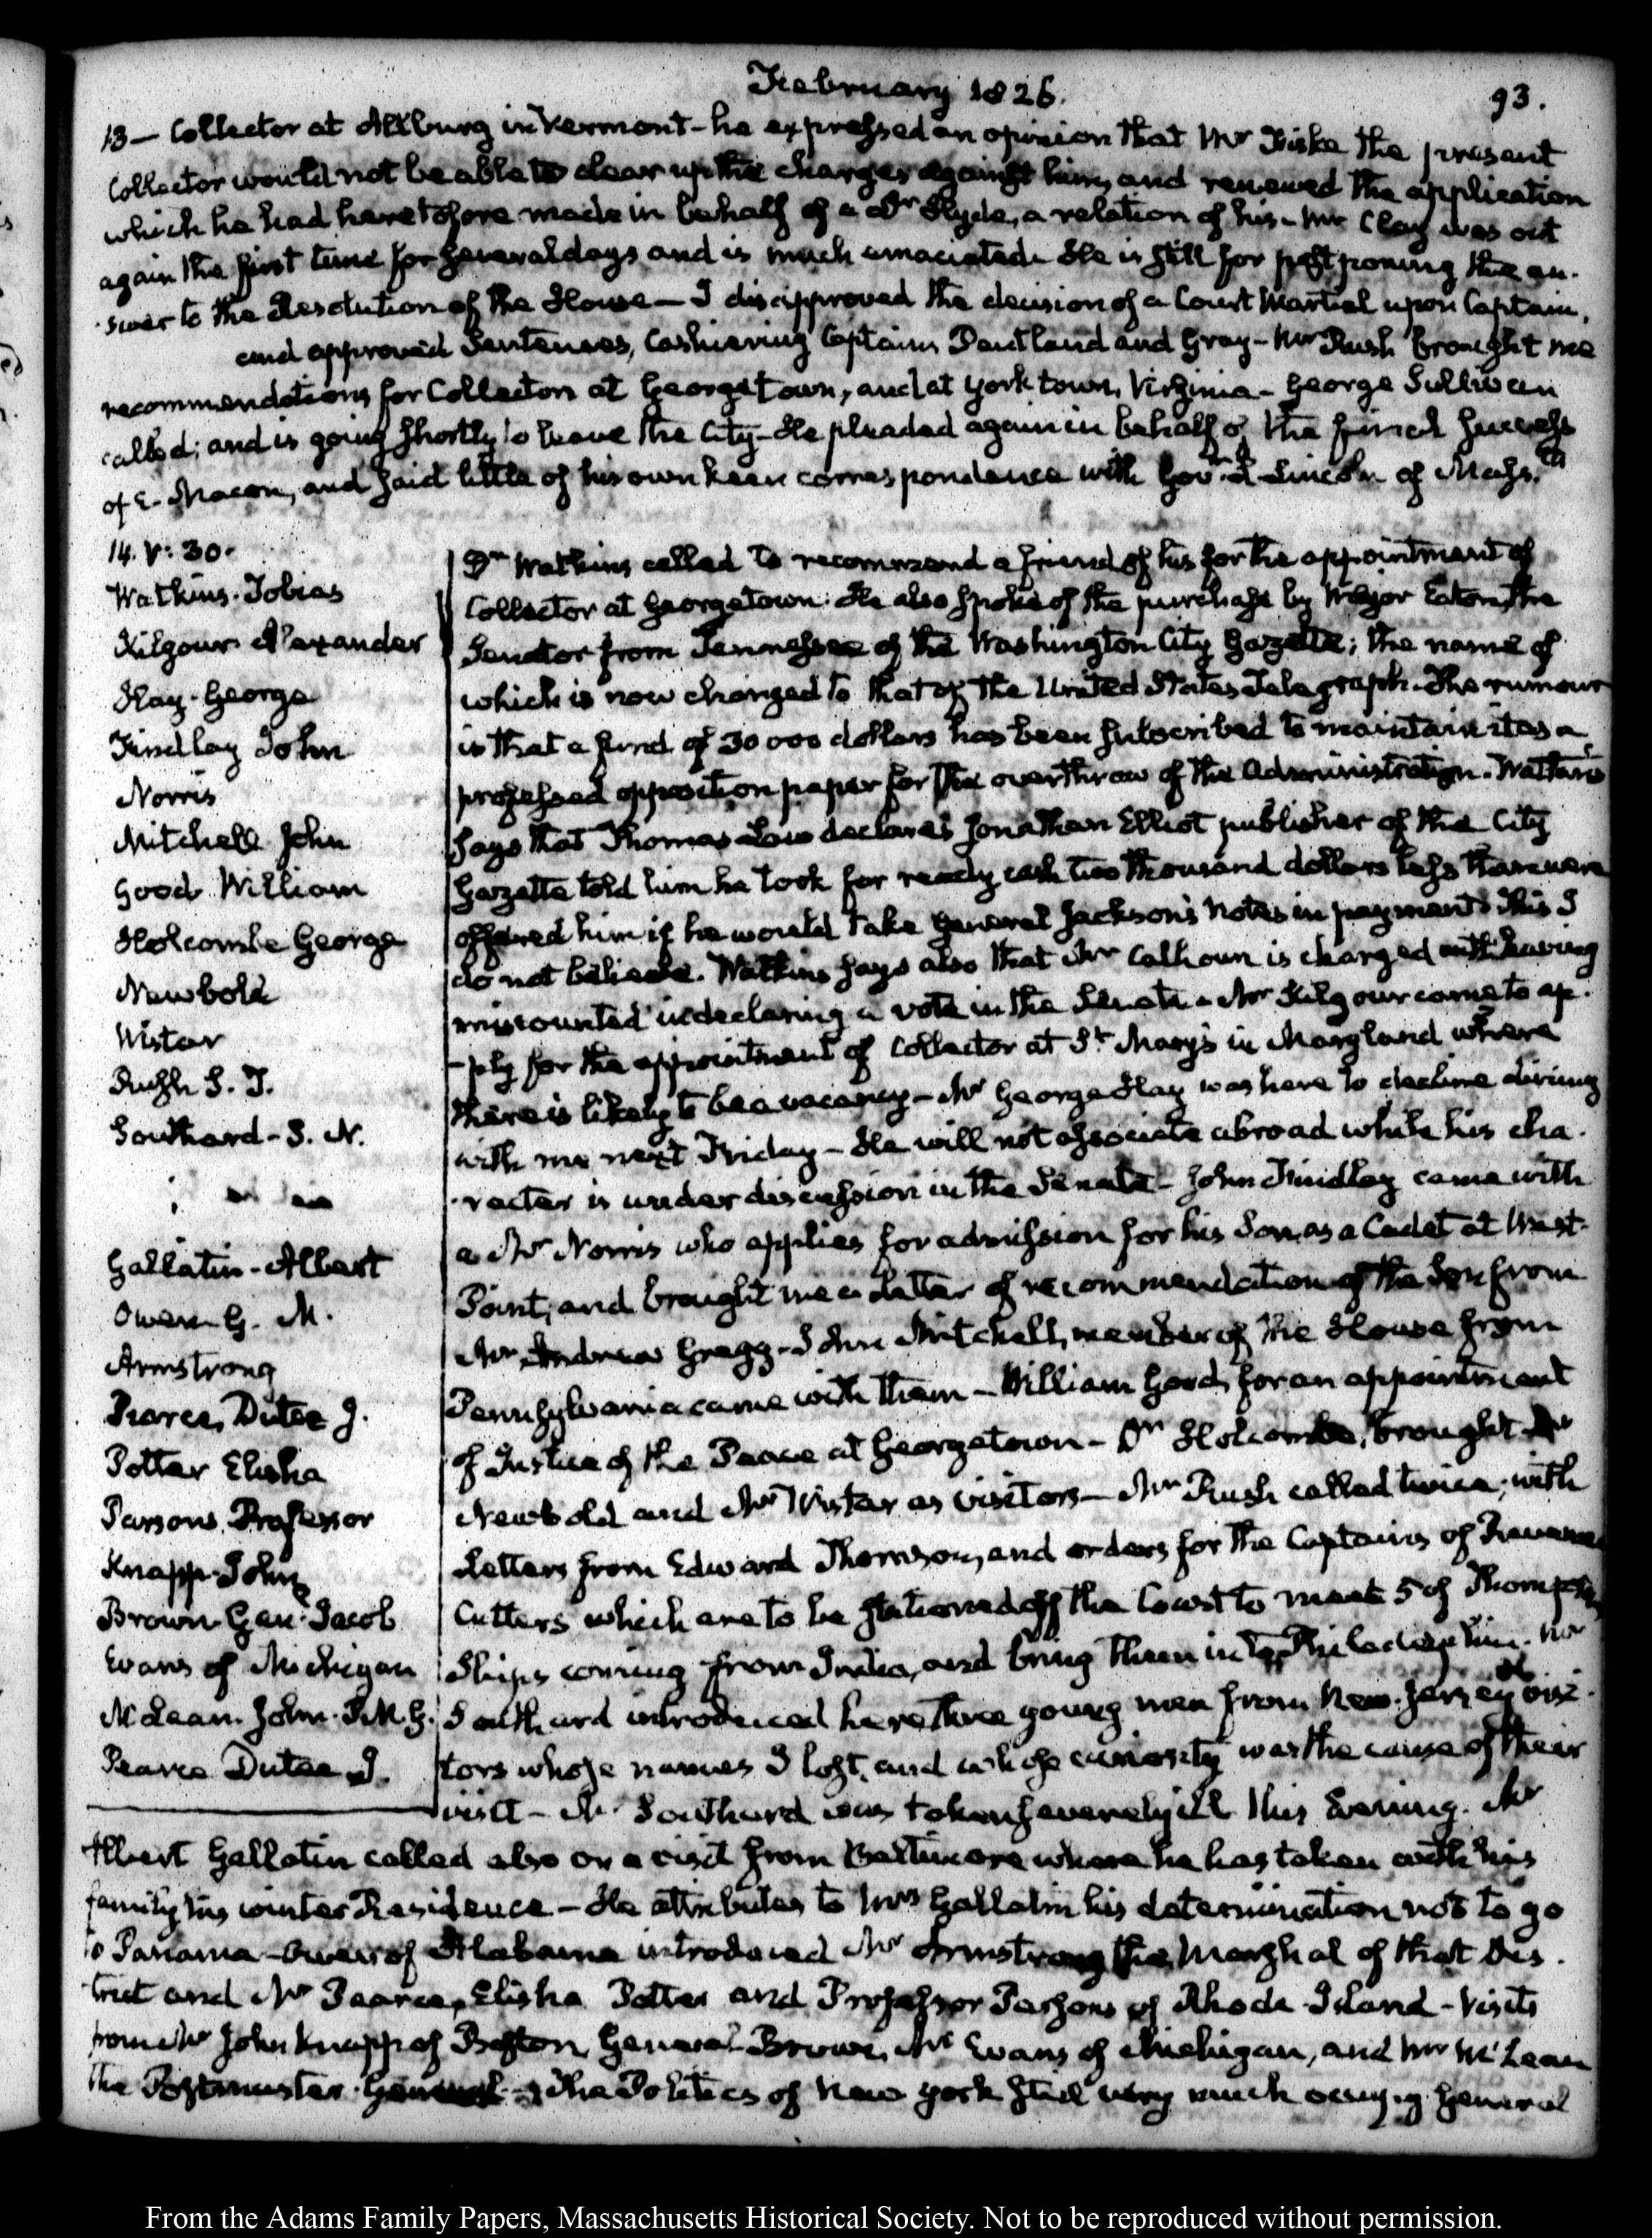 February 1826.
93.
13 — Collector at Allburg in Vermont - he expressed an opinion that Mr Fiske the present
Collector would not be able to clear up the charges against him, and renewed the application
which he had heretofore made in behalf of a Dr Hyde, a relation of his - Mr Clay was out
again the first time for several days and is much emaciated. He is still for postponing the an-
swer to the Resolution of the House — I disapproved the decision of a Court Martial upon Captain,
and approved Sentences, Cashiering Captains Pentland and Gray - Mr Rush brought me
recommendations for Collectors at Georgetown, and at York town, Virginia - George Sullivan
called; and is going shortly to leave the City - He pleaded again in behalf of the
of E. Macon, and said little of his own keen correspondence with Govr. L. Lincoln of Masstts
14. V: 30.
Watkins. Tobias
Kilgour Alexander
Hay. George
Findlay John
Norris
Mitchell John
Good William
Holcombe George
Newbold
Wistar
Rush
Southard - S. L.
Gallatin - Albert
Owen G. M.
Armstrong
Pearce, Dutee J.
Potter Elisha
Parsons. Professor
Knapp. John
Brown Gen. Jacob
Evans of Michigan
McLean. John. P.M.G.
Pearce Dutee J.
Dr Watkins called to recommend a friend of his for the appointment of
Collector at Georgetown. He also spoke of the purchase by Major Eaton, the
Senator from Tennessee of the Washington City Gazette; the name of
which is now changed to that of the United States Telegraph. The rumour
is that a fund of 30 000 dollars has been subscribed to maintain it as a
professed opposition paper for the overthrow of the Administration. Watkins
says that Thomas Law declares Jonathan Elliot publisher of the City
Gazette told him he took for ready cash two thousand dollars less than were
offered him if he would take General Jackson's Notes in payment. This I
do not believe. Watkins says also that Mr Calhoun is charged with having
miscounted in declaring a vote in the Senate - Mr Kilgour came to ap-
-ply for the appointment of Collector at St Mary's in Maryland where
there is likely to be a vacancy - Mr George Hay was here to decline dining
with me next Friday - He will not associate abroad while his cha-
-racter is under discussion in the Senate - John Findlay came with
a Mr Norris who applies for admission for his Son, as a Cadet at West-
Point; and brought me a letter of recommendation of the Son from
Mr Andrew Gregg - John Mitchell, member of the House from
Pennsylvania came with them - William Good, for an appointment
of Justice of the Peace at Georgetown - Dr Holcombe, brought Mr
Newbold and Mr Wistar as visitors - Mr Rush called twice; with
Letters from Edward Thomson, and orders for the Captains of Revenue
Cutters which are to be stationed off the Coast to meet 5 of Thompson's
Ships coming from India, and bring them into Philadelphia. Mr
Southard introduced here three young men from New-Jersey visi-
tors whose names I lost, and whose curiosity was the cause of their
visit - Mr Southard was taken severely ill this Evening. Mr
Albert Gallatin called also on a visit from Baltimore where he has taken with his
family his winter Residence - He attributes to Mrs Gallatin his determination not to go
to Panama - Owen of Alabama introduced Mr Armstrong the Marshal of that Dis-
trict and Mr Pearce, Elisha Potter and Professor Parsons of Rhode-Island - Visits
from Mr John Knapp of Boston, General Brown, Mr Evans of Michigan, and Mr McLean
the Postmaster-General - The Politics of New York still very much occupy General
From the Adams Family Papers, Massachusetts Historical Society. Not to be reproduced without permission.